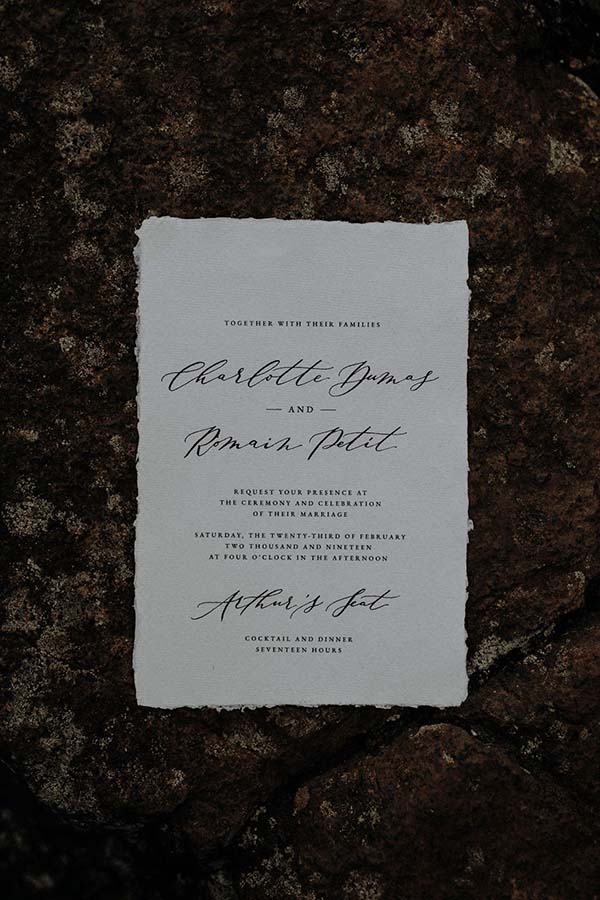 TOGETHER WITH THEIR FAMILIES
Charlotte Dumas
— AND —
Romain Petit
REQUEST YOUR PRESENCE AT
THE CEREMONY AND CELEBRATION
OF THEIR MARRIAGE
SATURDAY, THE TWENTY-THIRD OF FEBRUARY
TWO THOUSAND AND NINETEEN
AT FOUR O'CLOCK IN THE AFTERNOON
Arthur's Seat
COCKTAIL AND DINNER
SEVENTEEN HOURS